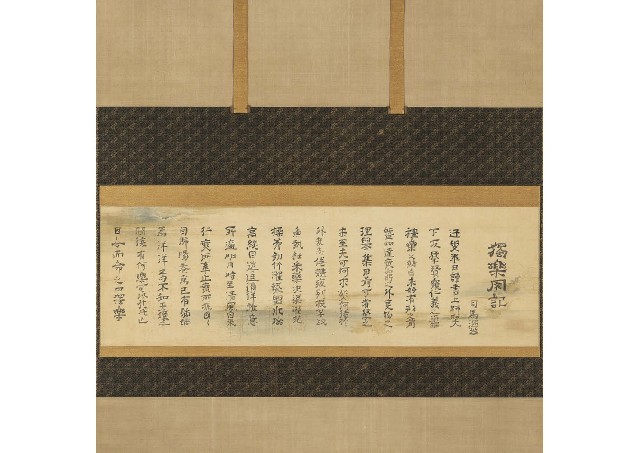 獨樂園記
司馬溫公
迂叟平日讀書上師聖人
下友群賢窺仁義之原
探禮樂之緒自未始有形之前
暨四達無窮之外事物之
理舉集目前可者學之
未至夫可何求於人何待於
外哉志倦體疲則投竿取
魚執衽采藥決渠灌花
操斧剖竹濯熱盥水臨
高縱目逍遙徜徉唯意
所適明月時至清風自來
行無所牽止無所柅耳
目肺腸卷為己有踽踽
焉洋洋焉不知天壤之
間復有何樂可以代此也
而命之曰獨樂